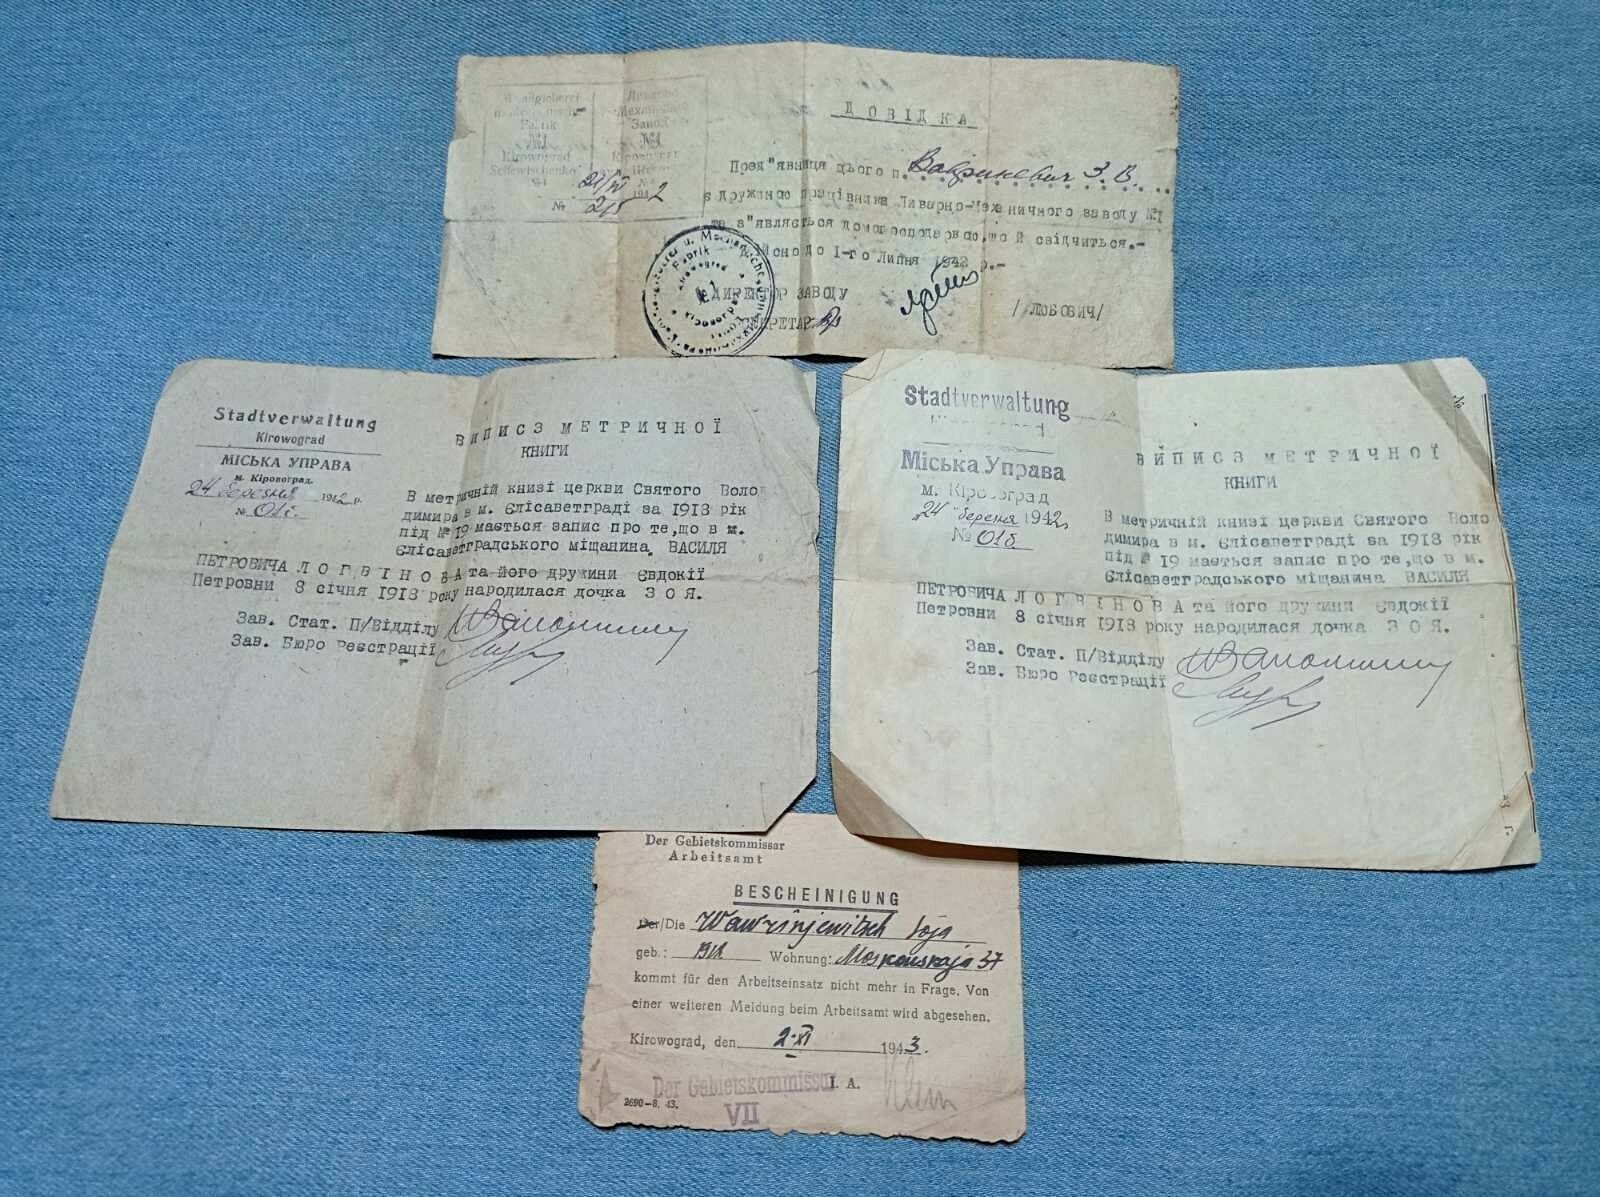 Fabrik
№1
Kirowograd
№1
Кіровоград
1942
№
ДОВІДКА
Пред"явниця цього п. Вавриневич З.В.
є дружиною працівника Ливарно-Механичного заводу №I
та з"являється домогосподаркою, що й свідчиться.-
Дісно до I-го Липня 1942 р.-
ДИРЕКТОР ЗАВОДУ
/ЛЮБОВИЧ/
СЕКРЕТАР
Stadtverwaltung
Kirowograd
МІСЬКА УПРАВА
м. Кіровоград.
24 березня 1942 р.
№ 016.
ВИПИС З МЕТРИЧНОЇ
КНИГИ
В метричній книзі церкви Святого Воло
димира в м. Єлісаветграді за 1918 рік
під № 19 мається запис про те, що в м.
Єлісаветградського міщанина ВАСИЛЯ
ПЕТРОВИЧА ЛОГВІНОВА та його дружини Євдокії
Петровни 8 січня 1918 року народилася дочка ЗОЯ.
Зав. Стат. П/Відділу
Зав. Бюро Реєстрації
Stadtverwaltung
Міська Управа
м. Кіровоград
24 березня 1942 р.
№ 016.
№
ВИПИС З МЕТРИЧНОЇ
КНИГИ
В метричній книзі церкви Святого Воло
димира в м. Єлісаветграді за 1918 рік
під № 19 мається запис про те, що в м.
Єлісаветградського міщанина ВАСИЛЯ
ПЕТРОВИЧА ЛОГВІНОВА та його дружини Євдокії
Петровни 8 січня 1918 року народилася дочка ЗОЯ.
Зав. Стат. П/Відділу
Зав. Бюро Реєстрації
Der Gebietskommissar
Arbeitsamt
BESCHEINIGUNG
Der/Die Wawrinjewitsch Soja
geb.: 1918 Wohnung: Moskowskaja 37
kommt für den Arbeitseinsatz nicht mehr in Frage. Von
einer weiteren Meldung beim Arbeitsamt wird abgesehen.
Kirowograd, den 2.XI 1943.
Der Gebietskommissar I. A. Klein
VII
2690—8. 43.